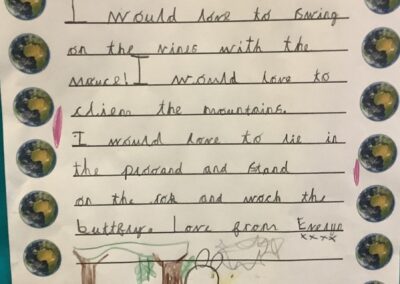 I would love to swing
on the vines with the
I would love to
the mountains.
I would love to lie in
the and stand
on the rok and woch the
buttfly. Love from
xxxx